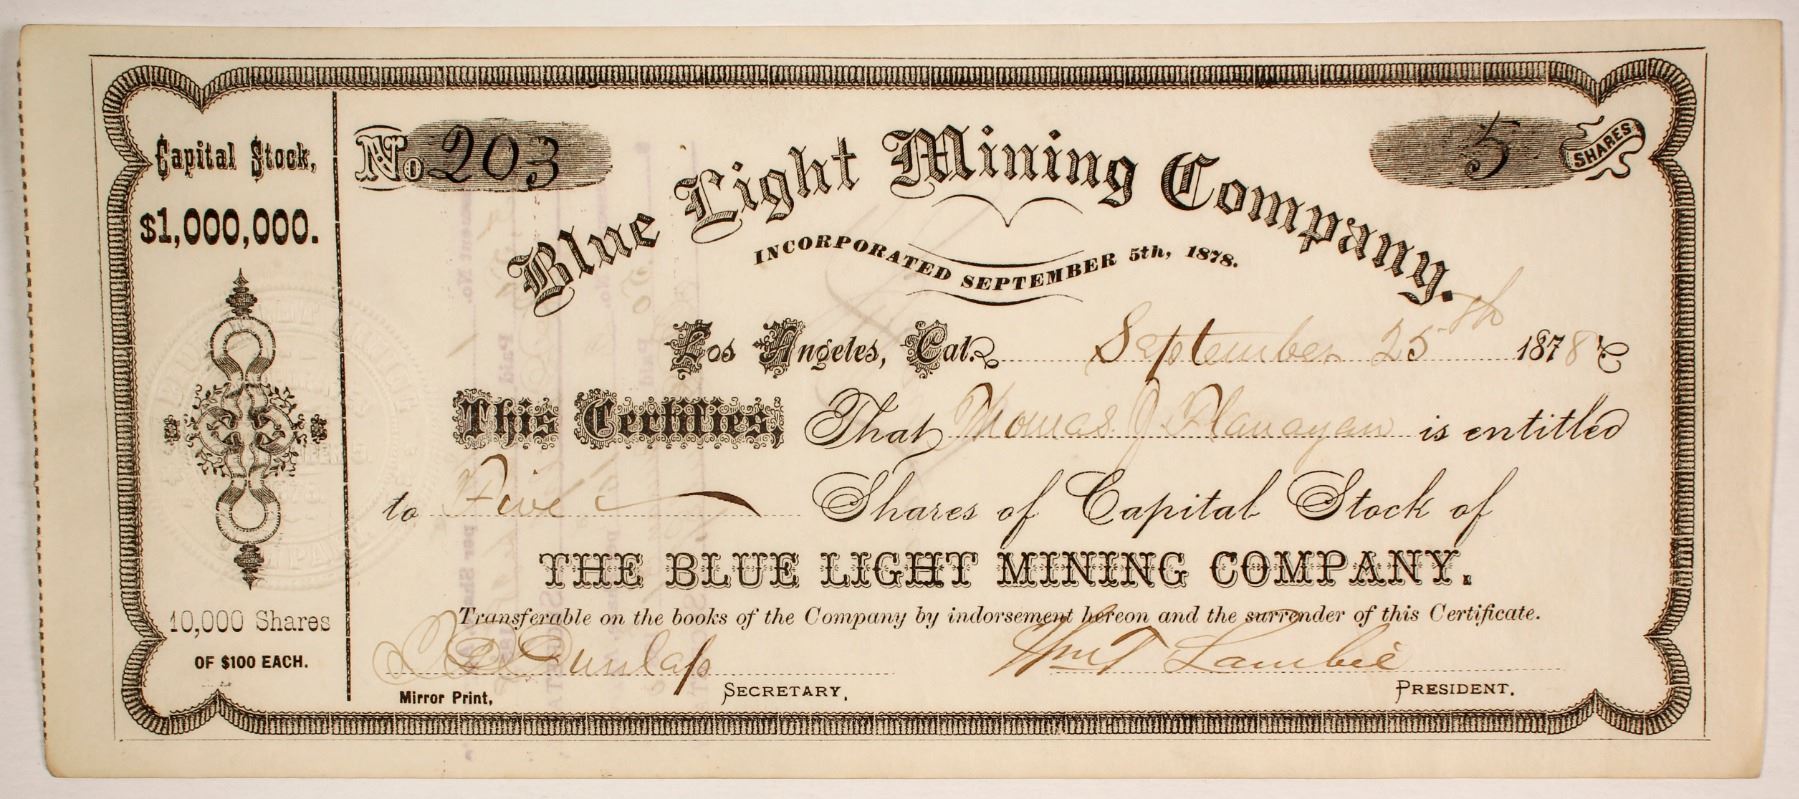 Capital Stock,
$1,000,000.
10,000 Shares
OF $100 EACH.
No 203
5 SHARES
Blue Light Mining Company.
INCORPORATED SEPTEMBER 5th, 1878.
Los Angeles, Cal. September 25th 1878
This Certifies, That Thomas J Flanagan is entitled
to Five Shares of Capital Stock of
THE BLUE LIGHT MINING COMPANY.
Transferable on the books of the Company by indorsement hereon and the surrender of this Certificate.
Dunlap Wm T Lambie
Mirror Print, SECRETARY. PRESIDENT.